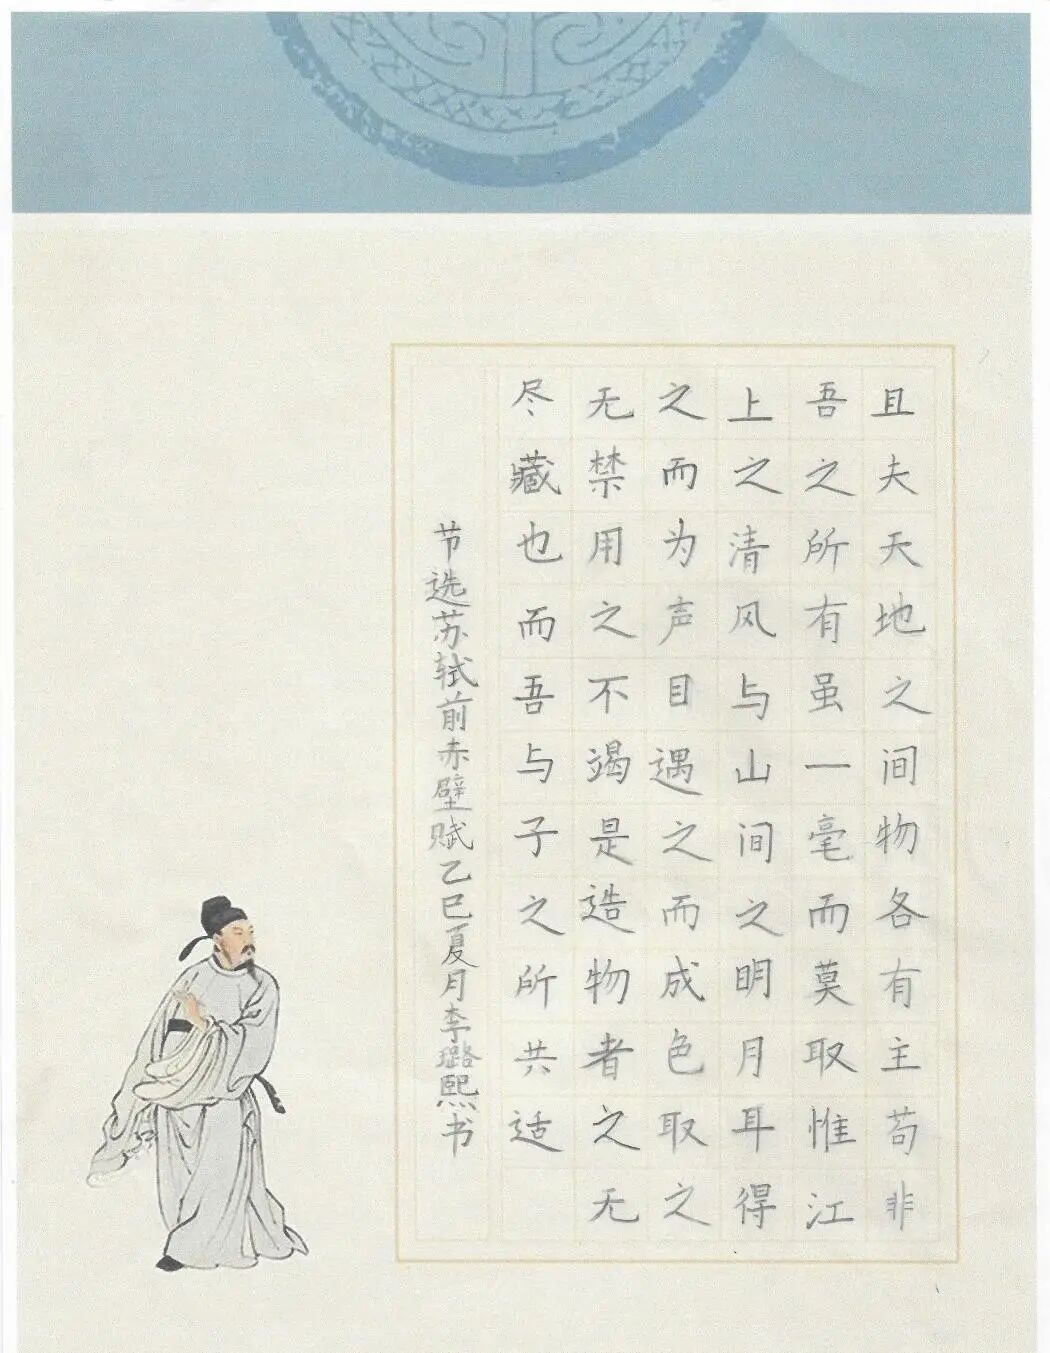 且夫天地之间物各有主苟非
吾之所有虽一毫而莫取惟江
上之清风与山间之明月耳得
之而为声目遇之而成色取之
无禁用之不竭是造物者之无
尽藏也而吾与子之所共适
节选苏轼前赤壁赋乙巳夏月李璐熙书